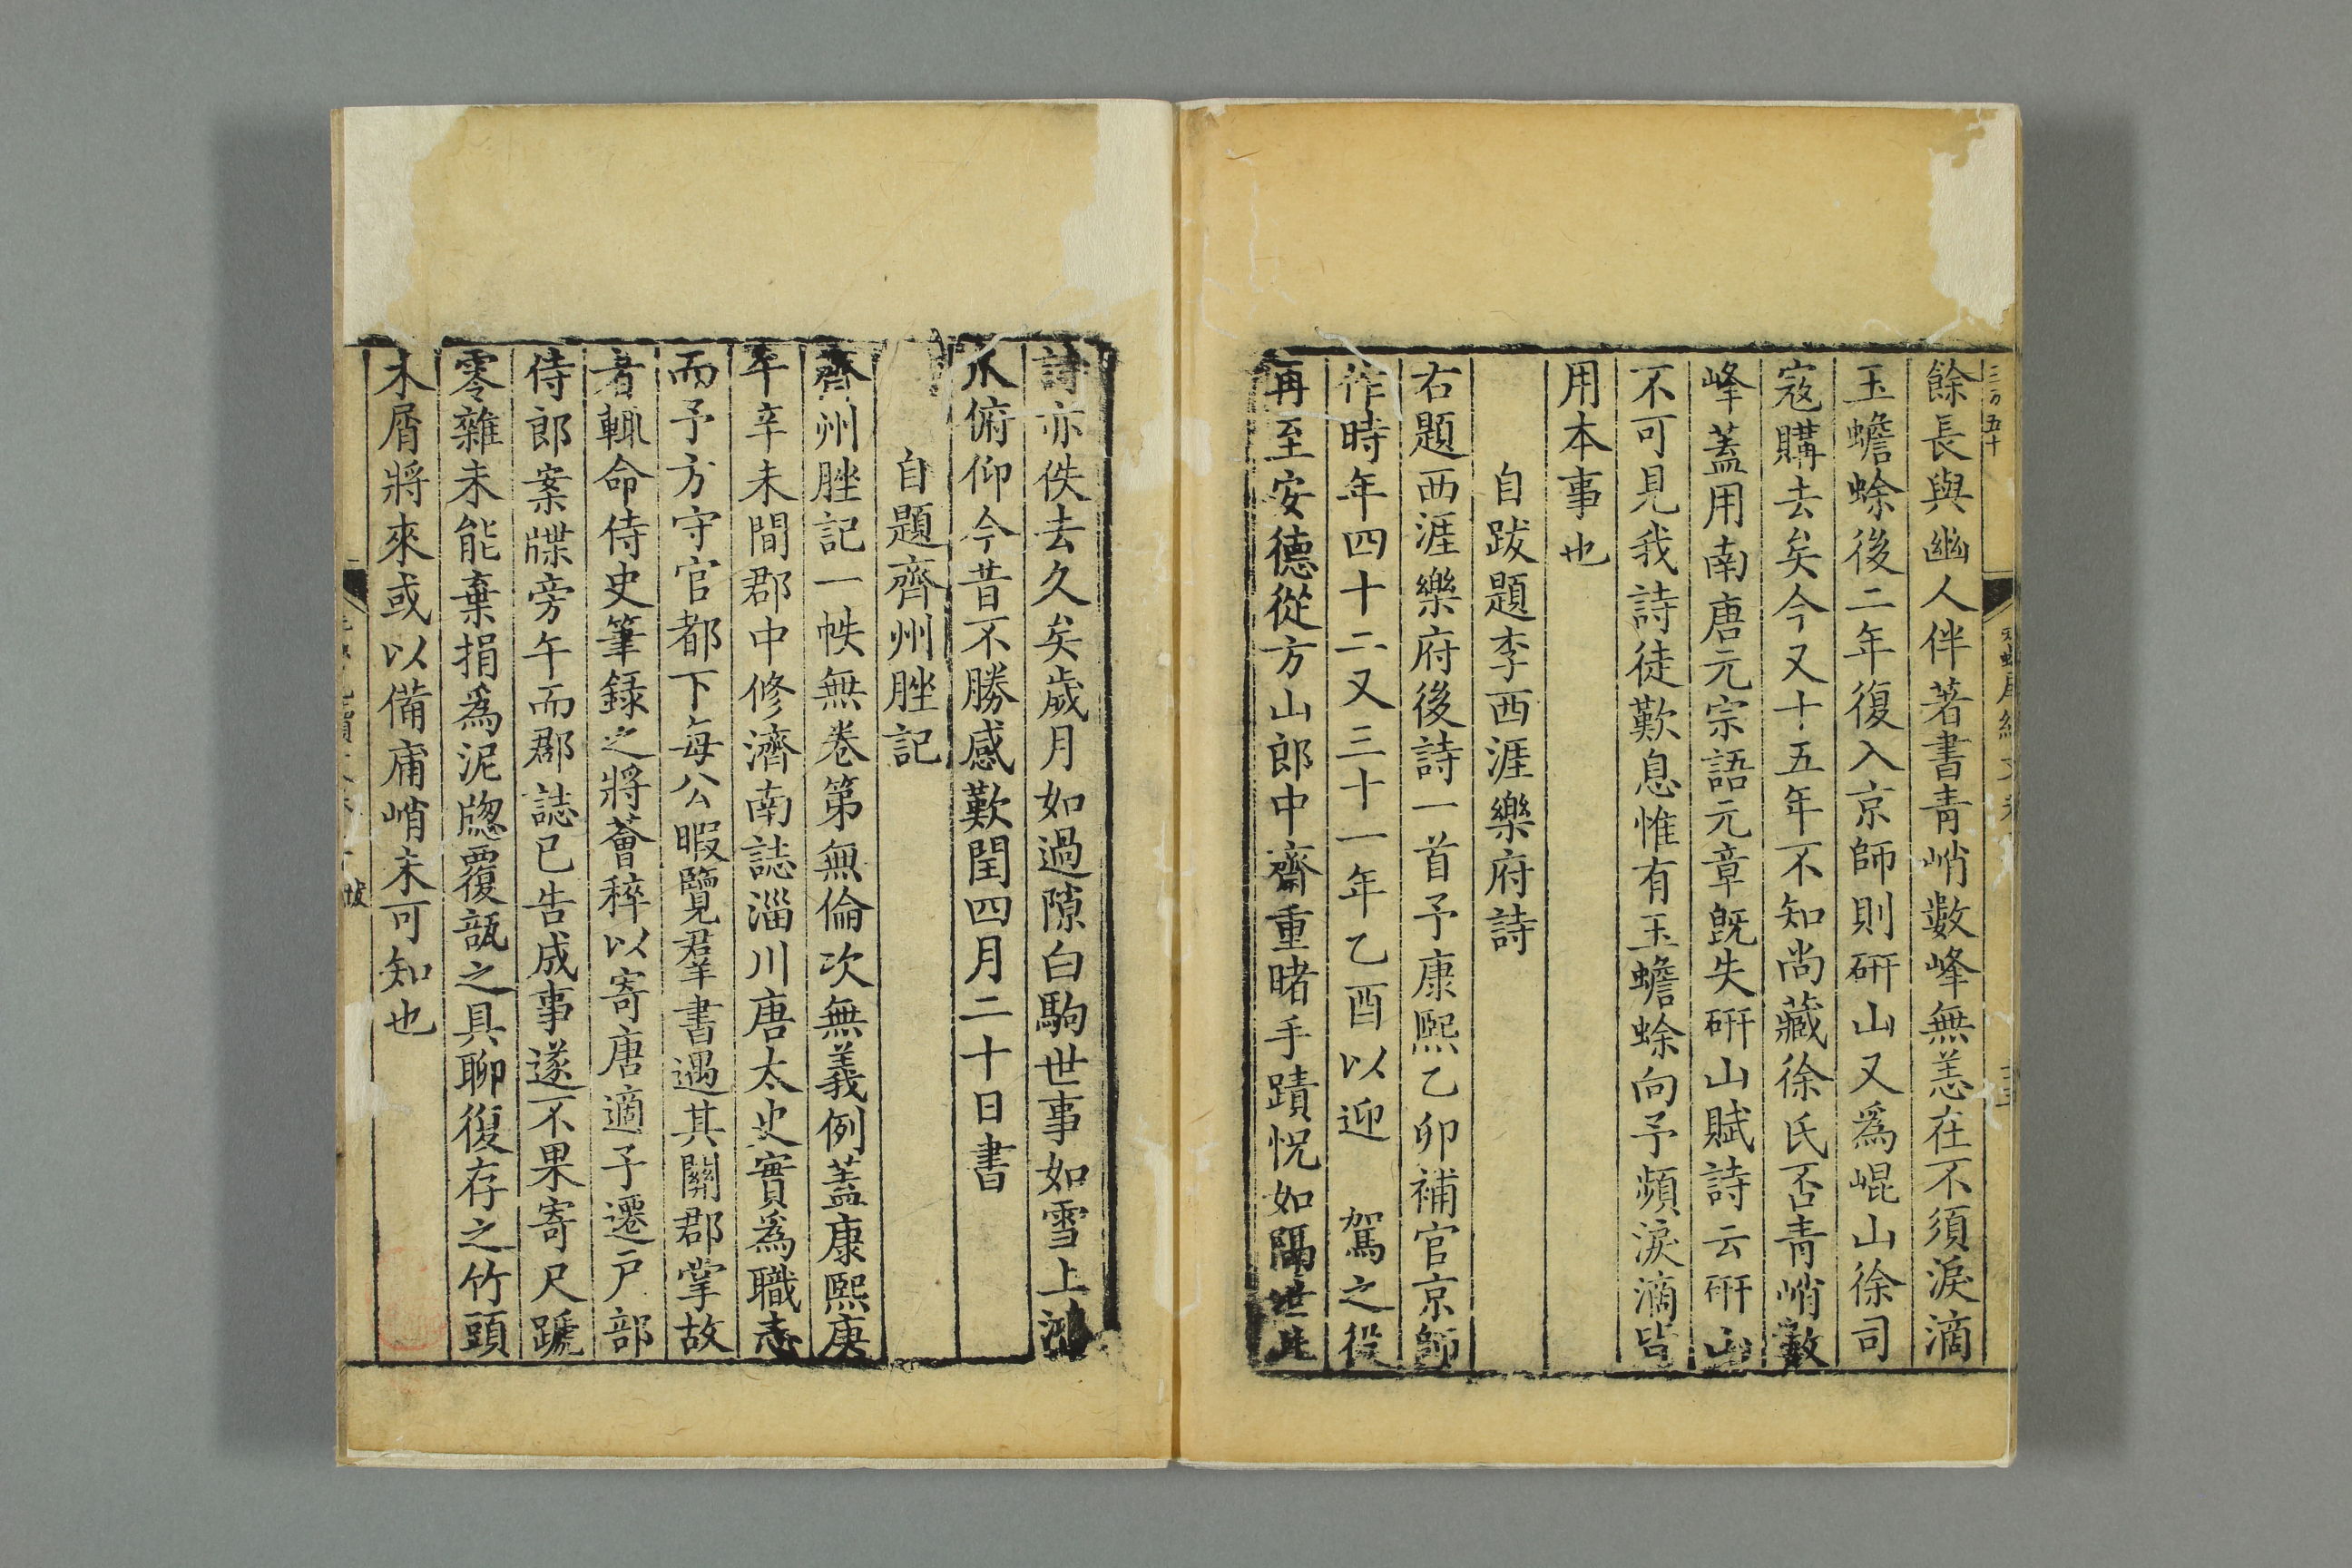 三百五十
餘長與幽人伴著書青峭數峰無恙在不須淚滴
玉蟾蜍後二年復入京師則硏山又為崐山徐司
寇購去矣今又十五年不知尚藏徐氏否青峭數
峰蓋用南唐元宗語元章旣失硏山賦詩云硏山
不可見我詩徒歎息惟有玉蟾蜍向予頻淚滴皆
用本事也
自跋題李西涯樂府詩
右題西涯樂府後詩一首予康熙乙卯補官京師
作時年四十二又三十一年乙酉以迎 駕之役
再至安德從方山郎中齋重睹手蹟怳如隔世此
詩亦佚去久矣歲月如過隙白駒世事如雪上鴻
爪俯仰今昔不勝感歎閏四月二十日書
自題齊州脞記
齊州脞記一帙無卷第無倫次無義例蓋康熙庚
午辛未間郡中修濟南誌淄川唐太史實為職志
而予方守官都下每公暇覽羣書遇其關郡掌故
者輒命侍史筆録之將薈稡以寄唐適予遷戸部
侍郎案牒旁午而郡誌已告成事遂不果寄尺蹏
零雜未能棄捐爲泥牕覆瓿之具聊復存之竹頭
木屑將來或以備庸峭未可知也
跋